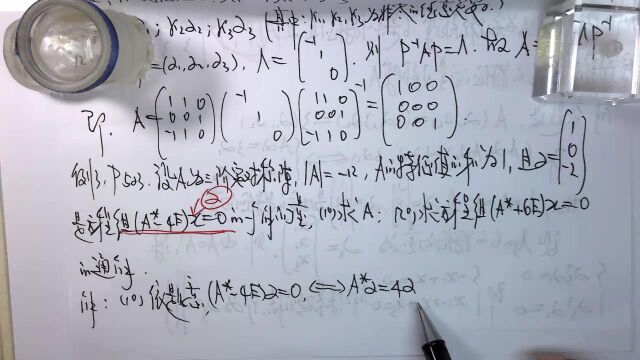 ; k₂α₂; k₃α₃ (其中: k₁, k₂, k₃为
=(α₁, α₂, α₃), Λ = [-1 1 0]. 则 P⁻¹AP=Λ. A = ΛP⁻¹
即. A = (1 1 0; 0 0 1; -1 1 0) (-1 1 0) (1 1 0; 0 0 1; -1 1 0)⁻¹ = (1 0 0; 0 0 0; 0 0 1).
例13. P523. 设A为三阶实对称阵, |A| = -12, A的特征值的和为1, 且α = (1 0 -2)
是方程组(A*-4E)x=0的一个解向量, (1)求A; (2)求方程组(A*+6E)x=0
②
的通解.
解: (1) 依题意, (A*-4E)α=0, ⟺ A*α=4α